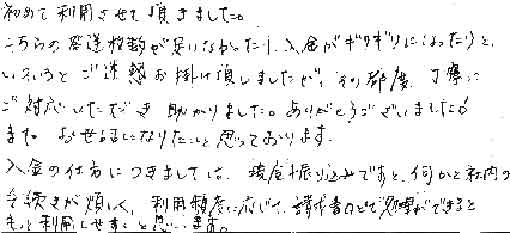 初めて利用させて頂きました。
こちらの発送枚数が足りなかったり、入金がギリギリになったりと、
いろいろとご迷惑お掛け頂しましたが、その都度、丁寧に
ご対応いただき助かりました。ありがとうございました。
また、お世話になりたいと思っております。
入金の仕方につきましては、現金振り込みですと、何かと社内の
手続きが煩しく、利用頻度に応じて、請求書などで処理ができると
もっと利用しやすいと思います。